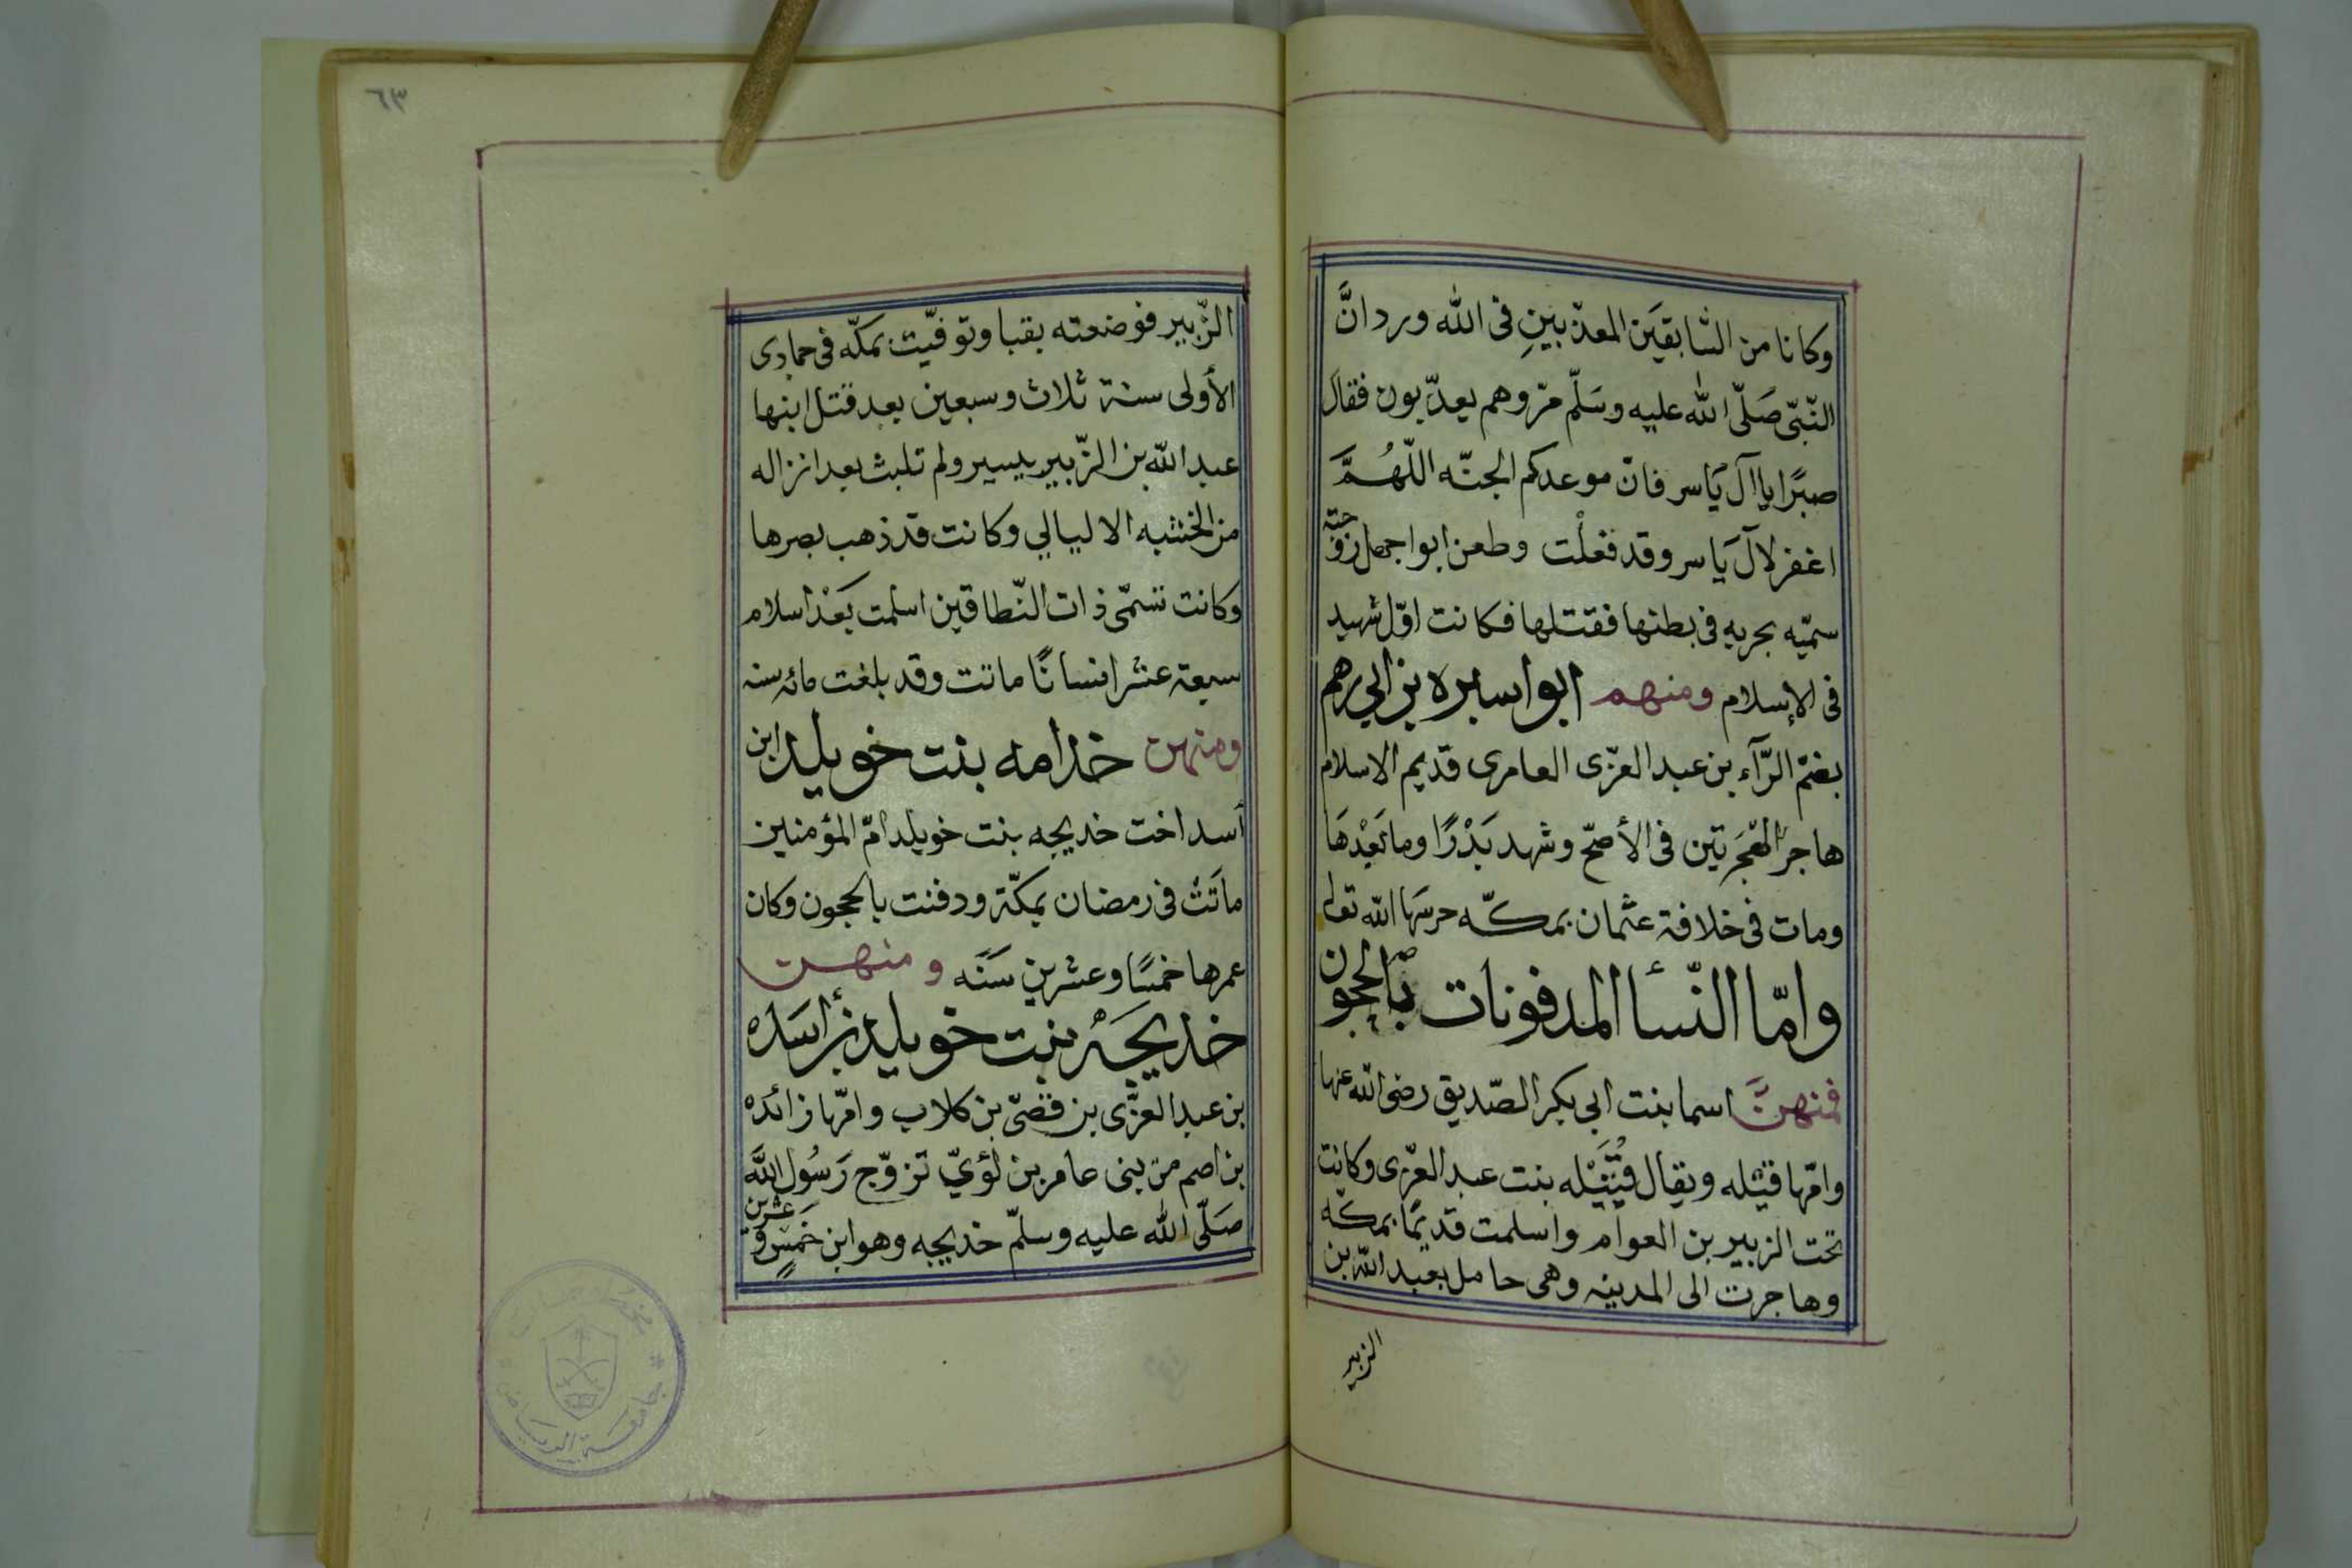 وكانا من السّابقين المعذّبين فى الله ورد انّ
النّبّى صَلّى الله عليه وسَلّم مرّ وهم يعذّبون فقال
صبرًا يا آل يَاسر فانّ موعدكم الجنّه اللّهُمَّ
اغفر لآل يَاسر وقد فعلت وطعن ابوا جهل زوجته
سميّه بحربه فى بطنها فقتلها فكانت اوّل شهيد
فى الإسلام ومنهم ابوا سبره بن ابي رهم
بضمّ الرّآء بن عبد العزّى العامرى قديم الاسلام
هاجر الهْجرَتين فى الأصحّ وشهد بَدْرًا وما بَعْدهَا
ومات فى خلافة عثمان بمكّه حرسَها الله تعالى
وامّا النّسأ المدفونات بالحجون
فمنهنَّ اسما بنت ابى بكر الصّديق رضى الله عنها
وامّها قتْله ويقال قُتَيْله بنت عبد العزّى وكانت
تحت الزبير بن العوام واسلمت قديمًا بمكّه
وهاجرت الى المدينه وهى حامل بعبد الله بن
الزبير
٦٣
الزّبير فوضعته بقبا وتوفّيت بمكّه فى جمادى
الأولى سنة ثلاث وسبعين بعد قتل ابنها
عبد الله بن الزّبير بيسير ولم تلبث بعد انزاله
من الخشبه الا ليالي وكانت قد ذهب بصرها
وكانت تسمّى ذات النّطاقين اسلمت بَعْد اسلام
سبعة عشر انسانًا ماتت وقد بلغت مائه سنه
ومنهن خدامه بنت خويلد ابن
أسد اخت خديجه بنت خويلد امّ المؤمنين
ماتَتْ فى رمضان بمكّة ودفنت بالحجون وكان
عمرها خمسًا وعشرين سَنَه ومنهن
خديجَة بنت خويلد بن اسد
بن عبد العزّى بن قصّى بن كلاب وامّها زائده
بن اصم من بنى عامر بن لؤيّ تزوّج رَسُول اللَّه
صَلّى الله عليه وسلّم خديجه وهو ابن خَمسٍ وعشرين
مخطوطات
جامعة الرياض